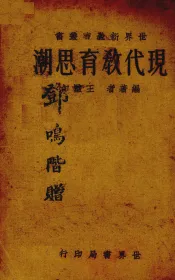 書叢育教新界世
潮思育教代現
者著編 王
鄧鳴階贈
行印局書界世